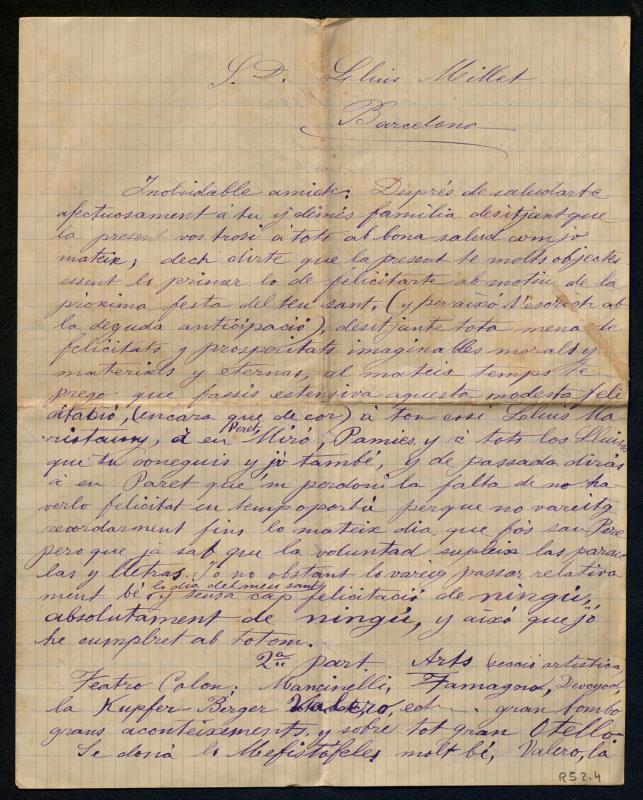 S. D. Lluis Millet
Barcelona
Inolvidable amich: Després de saludarte
afectuosament á tu y demés familia desitjant que
la present vos trovi á tots ab bona salud com jo
mateix, dech dirte que la present te molts objectes
essent lo primer lo de felicitarte ab motiu de la
próxima festa del teu sant, (y per aixó t'escrich ab
la deguda anticipació), desitjante tota mena de
felicitats y prosperitats imaginables morals y
materials y eternas, al mateix temps te
prego que fassis extensiva aquesta modesta feli
citació, (encara que de cor) á ton cosí Lluis Ma
ristany, á en Peret Miró, Pamies y á tots los Lluisos
que tu coneguis y jo també, y de passada dirás
á en Paret que 'm perdoni la falta de no ha-
verlo felicitat en temps oportú perque no vareitg
recordarment fins lo mateix dia que fós San Pere
pero que ja sab que la voluntad supleix las parau
las y lletras. Jo no obstant lo vareig passar relativa
ment bé lo dia del meu sant y sensa cap felicitació de ningú,
absolutament de ningú, y aixó que jo
he cumplert ab tothom.
2ª part Arts (secció artística)
Teatro Colon; Mancinelli, Tamagno, Devoyod,
la Kupfer-Berger, gran bombo
grans aconteixements, y sobre tot gran Otello
Se doná lo Mefistófeles molt bé, Valero, la
R52.4